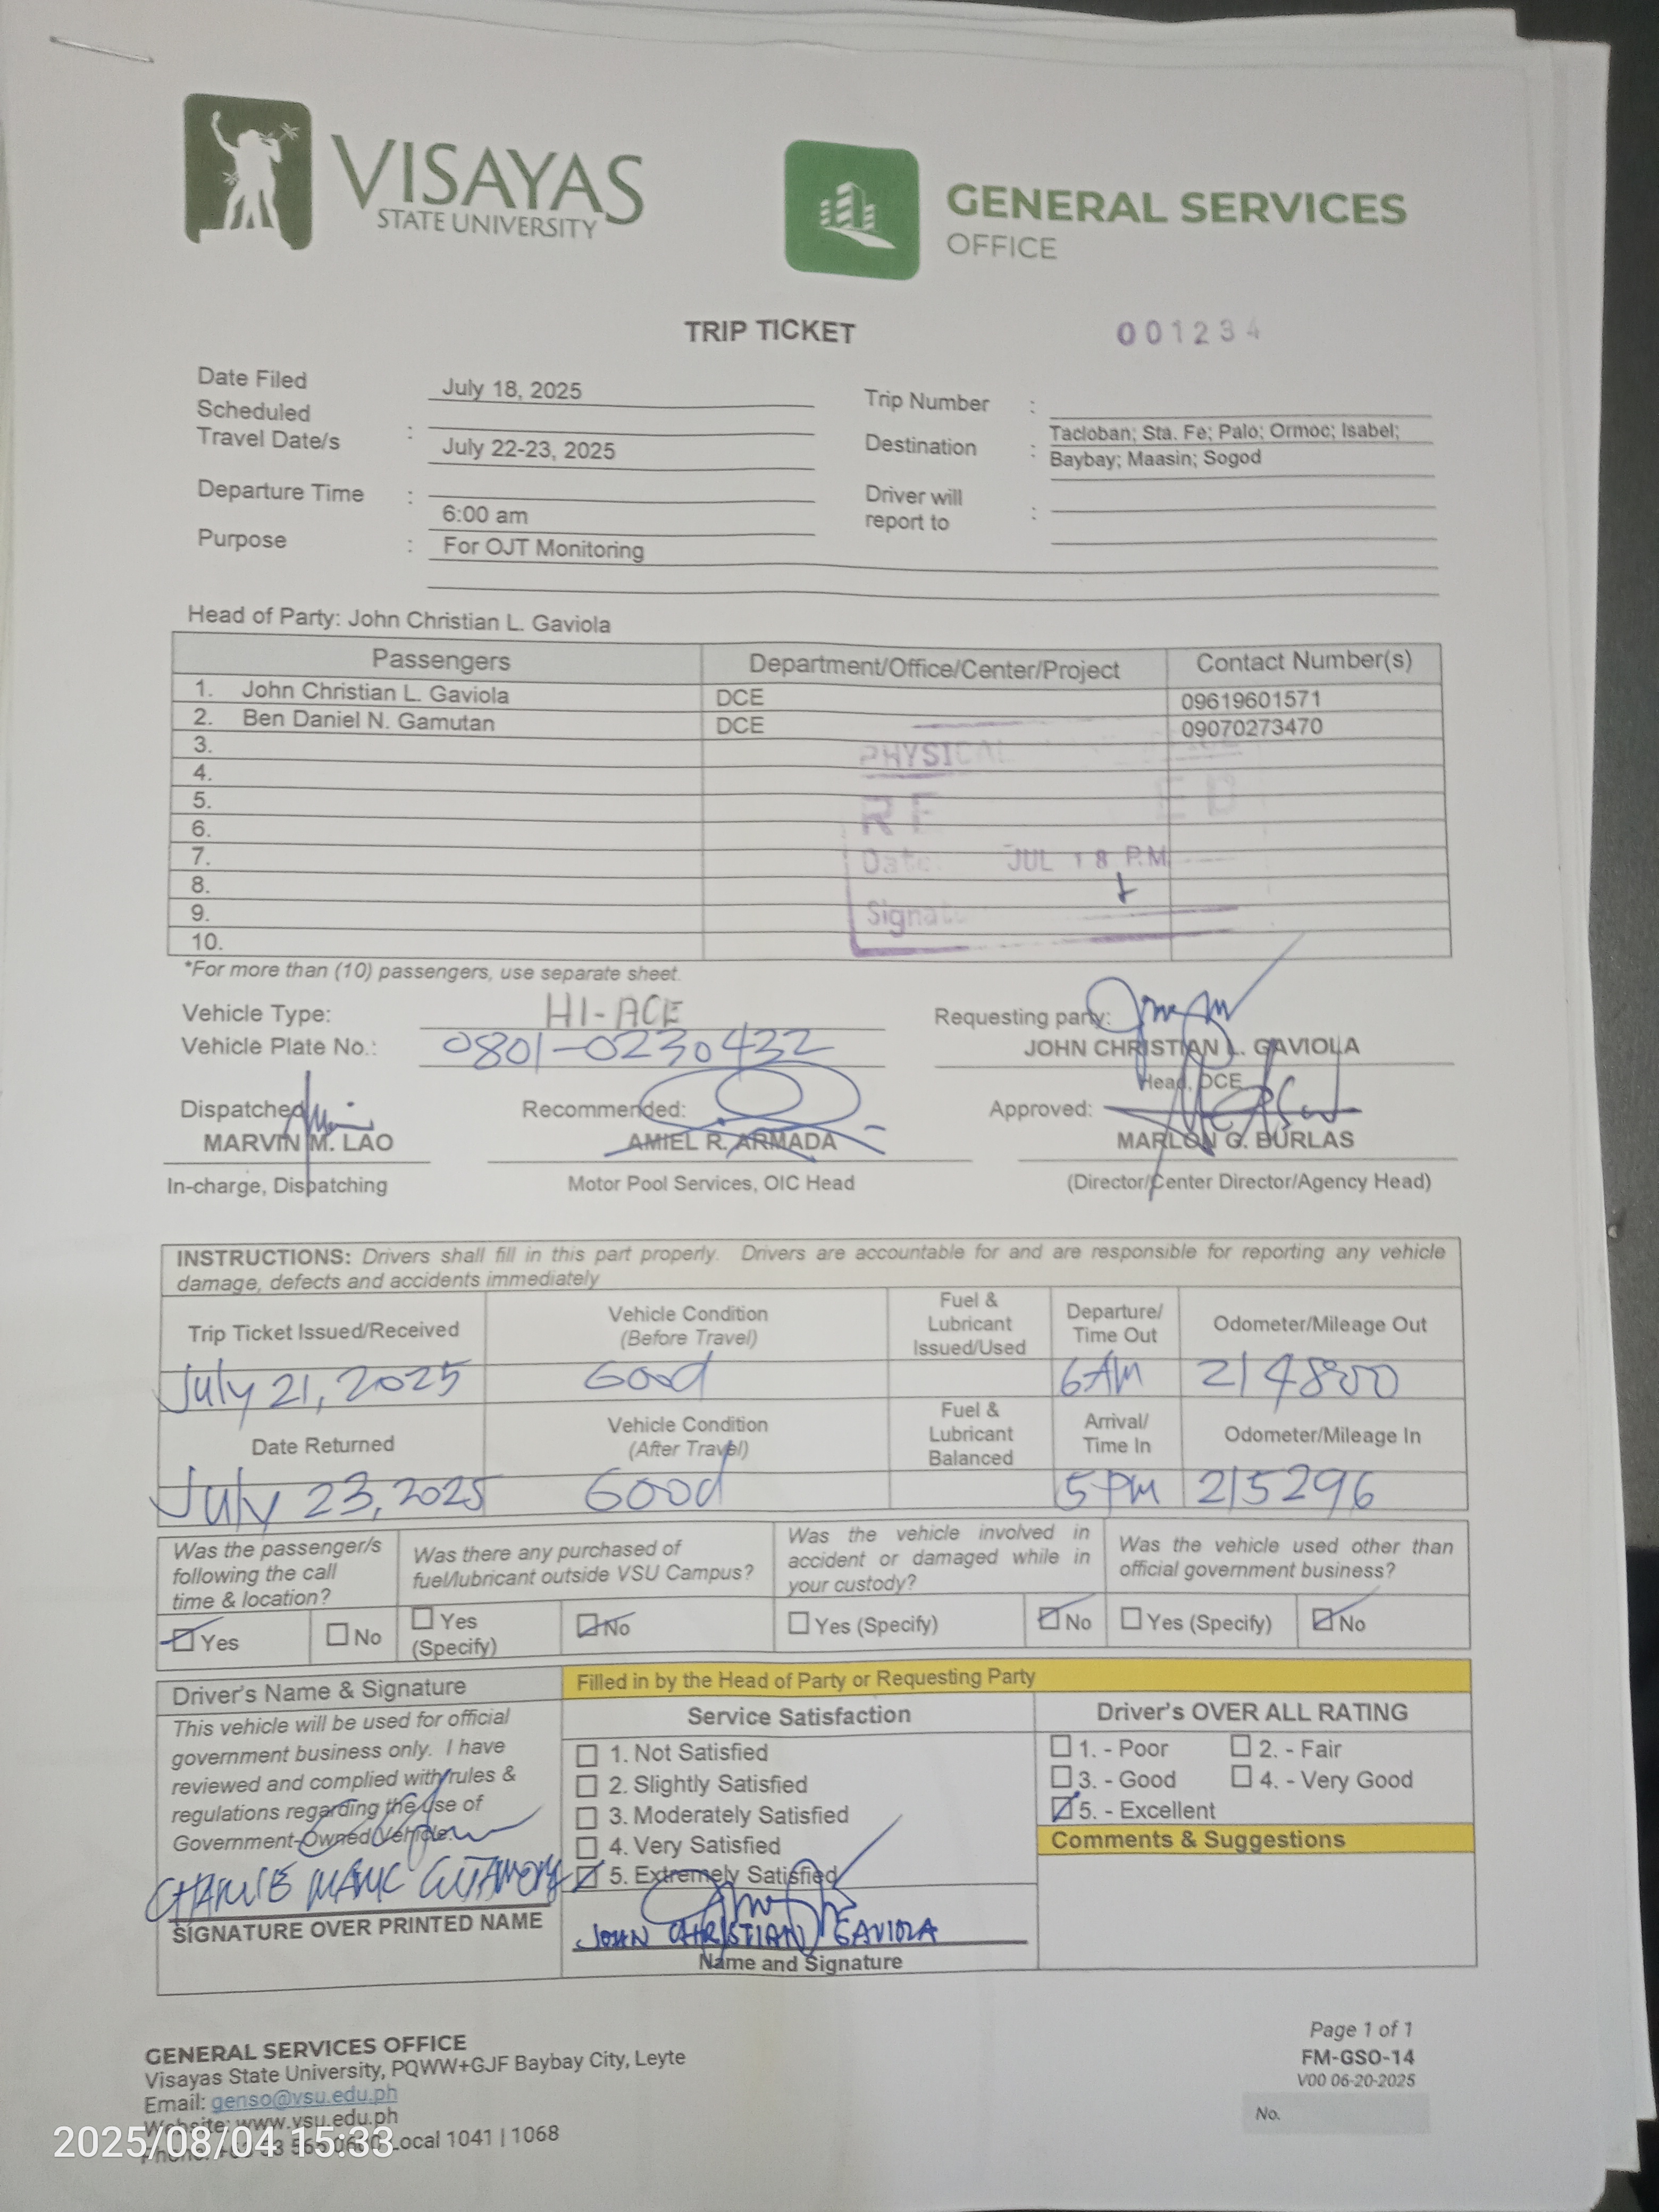 VISAYAS
STATE UNIVERSITY
GENERAL SERVICES
OFFICE
TRIP TICKET
001234
Date Filed
July 18, 2025
Scheduled
Travel Date/s : July 22-23, 2025
Departure Time : 6:00 am
Purpose : For OJT Monitoring
Trip Number :
Destination : Tacloban; Sta. Fe; Palo; Ormoc; Isabel;
Baybay; Maasin; Sogod
Driver will
report to :
Head of Party: John Christian L. Gaviola
Passengers Department/Office/Center/Project Contact Number(s)
1. John Christian L. Gaviola DCE 09619601571
2. Ben Daniel N. Gamutan DCE 09070273470
3.
4.
5.
6.
7.
8.
9.
10.
PHYSICAL
Date: JUL 18 P.M.
*For more than (10) passengers, use separate sheet.
Vehicle Type: HI-ACE
Vehicle Plate No.: 0801-0230432
Requesting party:
JOHN CHRISTIAN L. GAVIOLA
Head, DCE
Dispatched
MARVIN M. LAO
In-charge, Dispatching
Recommended:
AMIEL R. ARMADA
Motor Pool Services, OIC Head
Approved:
MARLON G. BURLAS
(Director/Center Director/Agency Head)
INSTRUCTIONS: Drivers shall fill in this part properly. Drivers are accountable for and are responsible for reporting any vehicle
damage, defects and accidents immediately
Trip Ticket Issued/Received
Vehicle Condition
(Before Travel)
Fuel &
Lubricant
Issued/Used
Departure/
Time Out
Odometer/Mileage Out
July 21, 2025 Good 6AM 214800
Date Returned
Vehicle Condition
(After Travel)
Fuel &
Lubricant
Balanced
Arrival/
Time In
Odometer/Mileage In
July 23, 2025 Good 5PM 215296
Was the passenger/s
following the call
time & location?
Was there any purchased of
fuel/lubricant outside VSU Campus?
Was the vehicle involved in
accident or damaged while in
your custody?
Was the vehicle used other than
official government business?
Yes No
Yes
(Specify)
No
Yes (Specify) No
Yes (Specify) No
Driver's Name & Signature
This vehicle will be used for official
government business only. I have
reviewed and complied with rules &
regulations regarding the use of
Government-Owned Vehicle.
CHARLIE MARK
SIGNATURE OVER PRINTED NAME
Filled in by the Head of Party or Requesting Party
Service Satisfaction
1. Not Satisfied
2. Slightly Satisfied
3. Moderately Satisfied
4. Very Satisfied
5. Extremely Satisfied
JOHN CHRISTIAN GAVIOLA
Name and Signature
Driver's OVER ALL RATING
1. - Poor 2. - Fair
3. - Good 4. - Very Good
5. - Excellent
Comments & Suggestions
GENERAL SERVICES OFFICE
Visayas State University, PQWW+GJF Baybay City, Leyte
Email: genso@vsu.edu.ph
Website: www.vsu.edu.ph
Local 1041 | 1068
2025/08/04 15:33
Page 1 of 1
FM-GSO-14
V00 06-20-2025
No.